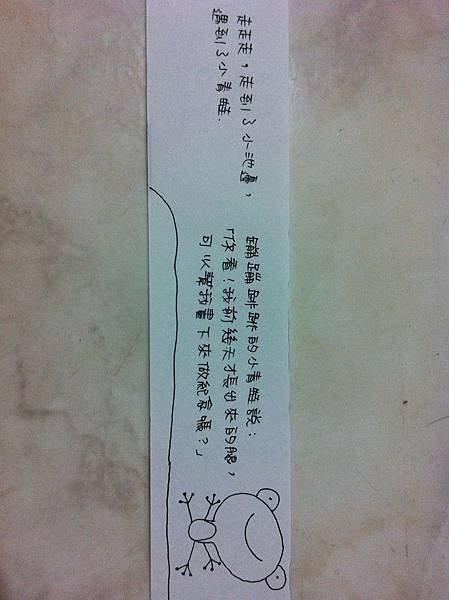 走走走，走到了小池邊，
遇到了小青蛙．
蹦蹦跳跳的小青蛙說：
「你看！我前幾天才長出來的腿，
可以幫我畫下來做紀念嗎？」